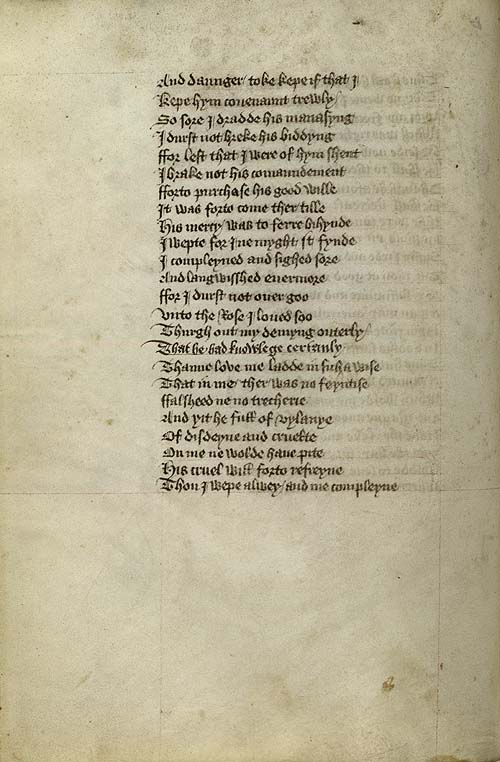 And daunger / toke kepe if that I
Kepe hym couenaunt trewly /
So sore I dradde his manasyng
I durst not breke his biddyng
ffor lest that I were of hym shent
I brake not his comaundement
fforto purchase his good wille
It was forto come ther tille
His mercy / was to ferre bihynde
I wepte for I ne myght it fynde
I compleyned and sighed sore
And langwisshed euermore
ffor I durst not ouer goo
Vnto the Rose I loued soo
Thurgh out my demyng outerly /
That he had knowlege certanly
Thanne loue me ladde in sich a wise
That in me / ther was no feyntise
ffalsheed ne no trecherie
And yit he full of vylanye
Of disdeyne and cruelte
On me ne wolde haue pite
His cruel will forto refreyne
Thou I wepe alwey / and me compleyne